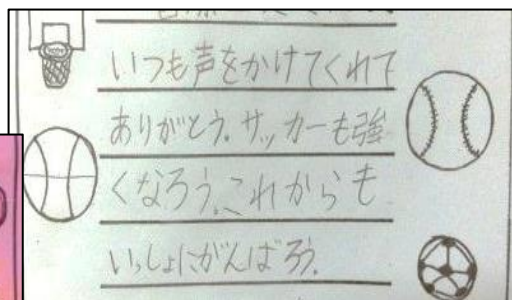 いつも声をかけてくれて
ありがとう。サッカーも強
くなろう。これからも
いっしょにがんばろう。